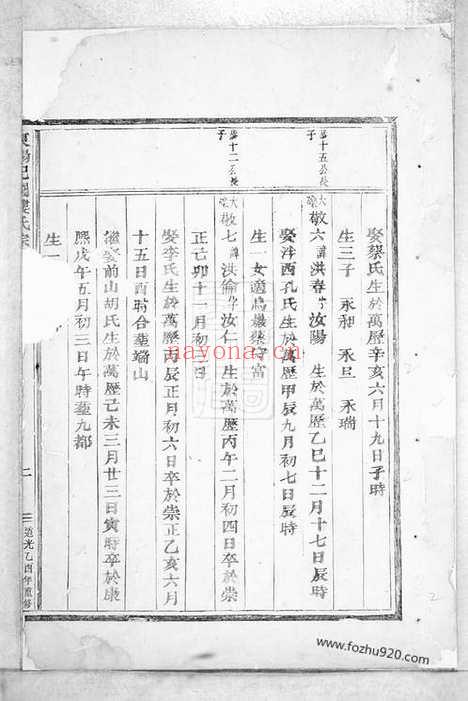 娶蔡氏生於萬歷辛亥六月十九日子時
生三子 永昶 永旦 永瑞
第十五公長子
大宗敬六諱洪春字汝陽 生於萬歷乙巳十二月十七日辰時
娶泮西孔氏生於萬歷甲辰九月初七日辰時
生一女適烏巖蔡守富
第十二公長子
敬七諱洪倫字汝仁 生於萬歷丙午二月初四日卒於崇
正己卯十一月初三日
娶李氏生於萬歷丙辰正月初六日卒於崇正乙亥六月
十五日酉時合葬端山
繼娶前山胡氏生於萬歷己未三月廿三日寅時卒於康
熙戊午五月初三日午時葬九都
生一
道光乙酉年重修
nayona.cn
www.fozhu920.com
2
2